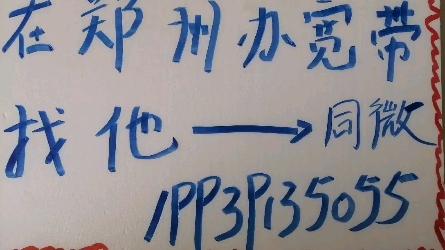 在郑州办宽带
找他→同微
1PP3P135055